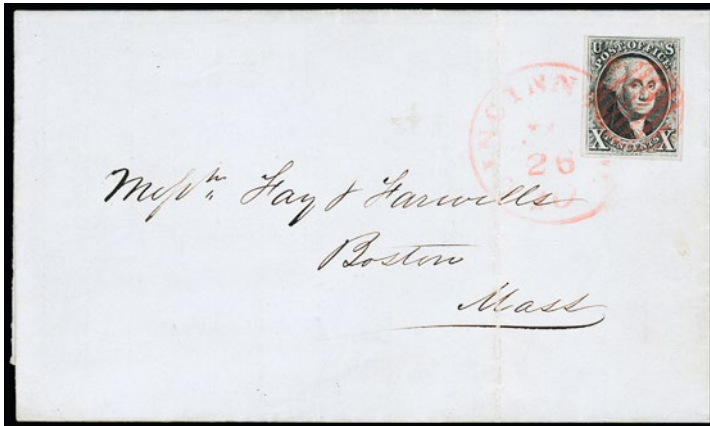 U S
POST OFFICE
X TEN CENTS X
26
Messrs Fay & Farwells
Boston
Mass